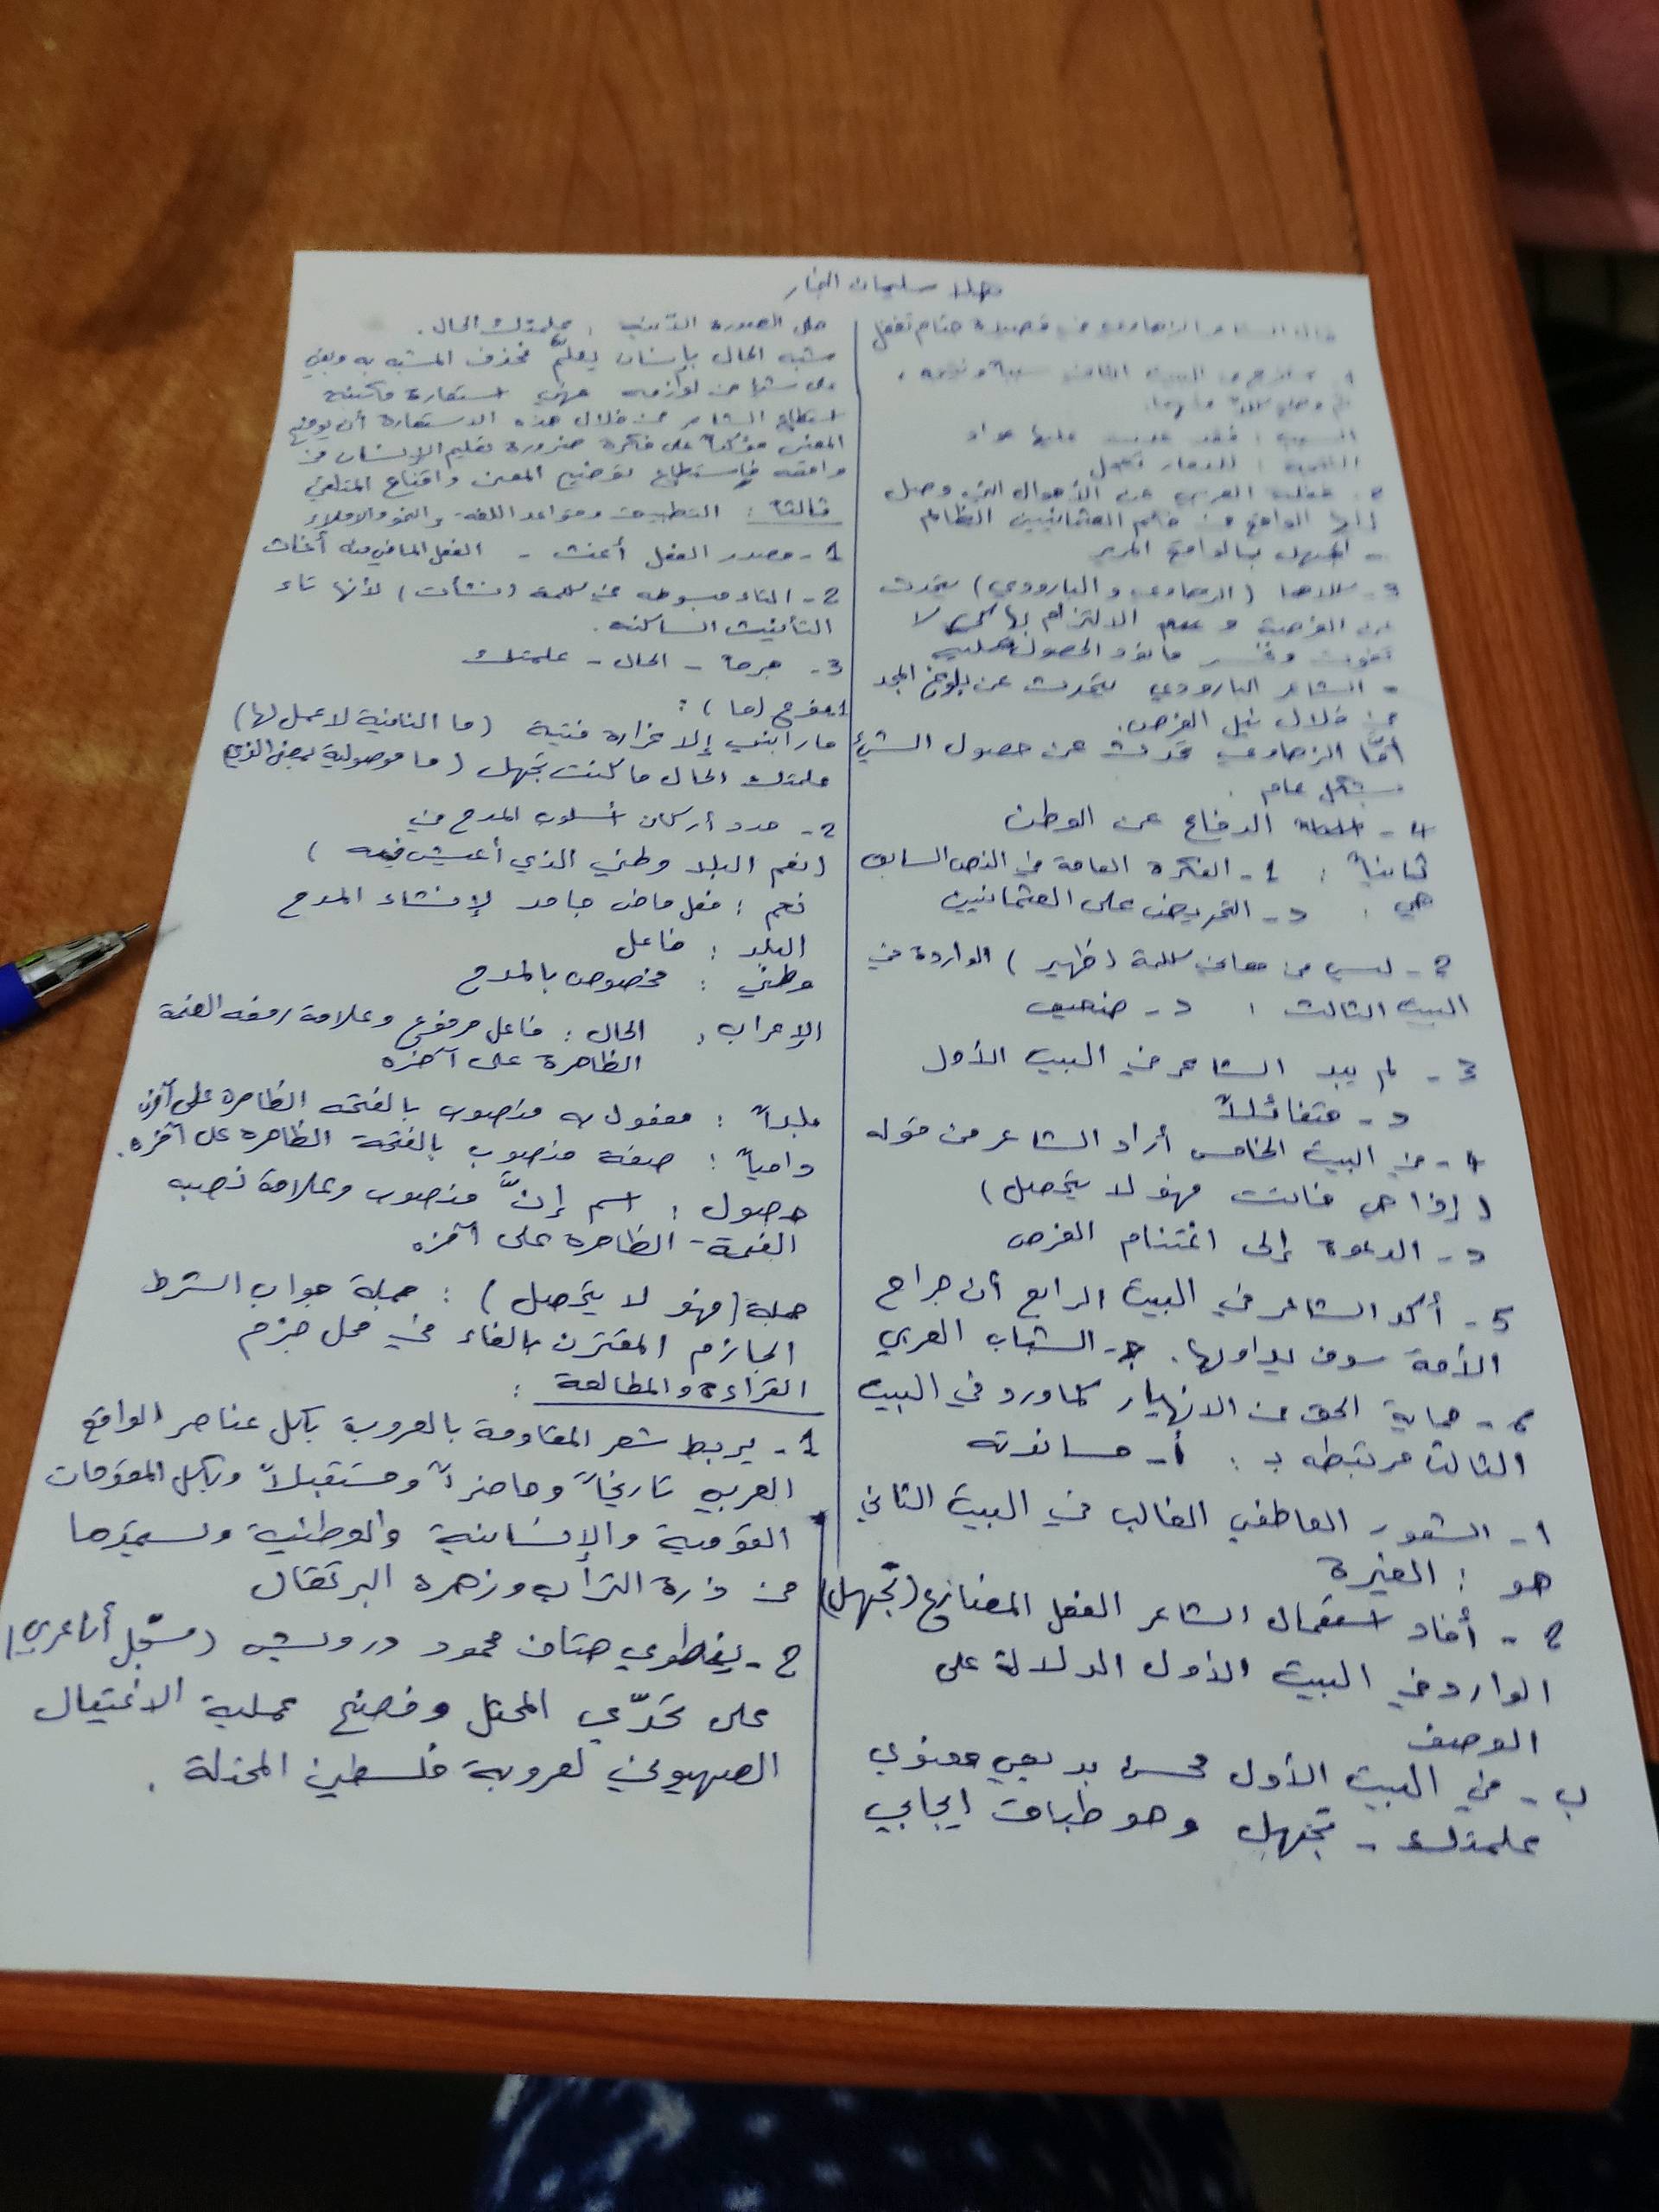 هلا سليمان النجار
قال الشاعر الزهاوي في قصيدة حتام تغفل
السبب : فقد عبثت عليها عواد
النتيجة : للدمار تعجل
2- غفلت العربي عن الأحوال التي وصل
إليها الواقع من حكم العثمانيين الظالم
- الجهل بالواقع المرير
3- كلاهما (الزهاوي والبارودي) يتحدث
عن الفرصة و عدم الالتزام بها كي لا
تفوت ونخسر ما نود الحصول عليه
- الشاعر البارودي يتحدث عن بلوغ المجد
من خلال نيل الفرص.
أمّا الزهاوي تحدث عن حصول الشيء
بشكل عام .
4- الدفاع عن الوطن
ثانياً : 1- الفكرة العامة في النص السابق
هي : د- التحريض على العثمانيين
2- ليس من معاني كلمة (ظهير) الواردة في
البيت الثالث : د- ضعيف
3- لم يبد الشاعر في البيت الأول
د- متفائلاً
4- في البيت الخامس أراد الشاعر من قوله
(إذا هي فاتت فهو لا يتحصل)
د- الدعوة إلى اغتنام الفرص
5- أكد الشاعر في البيت الرابع أن جراح
الأمة سوف يداويها. ج- الشباب العربي
6- حماية الحق من الانهيار كما ورد في البيت
الثالث مرتبطه بـ : أ- مساندته
1- الشعور العاطفي الغالب في البيت الثاني
هو : الغيرة
2- أفاد استعمال الشاعر الفعل المضارع (تجهل)
الوارد في البيت الأول الدلالة على
الوصف
ب- في البيت الأول محسن بديعي معنوي
علمتك - تجهل وهو طباق ايجابي
حلل الصورة الآتية : علمتك الحال .
شبه الحال بإنسان يعلّم فحذف المشبه به وبقي
على شيئا من لوازمه فهي استعارة مكنية
استطاع الشاعر من خلال هذه الاستعارة أن يوضح
المعنى مؤكداً على فكرة ضرورة تعليم الإنسان من
واقعه فاستطاع توضيح المعنى واقناع المتلقي
ثالثاً : التطبيق وقواعد اللغة والنحو والاملاء
1- مصدر الفعل أغث - الفعل الماضي منه أغاث
2- التاء مبسوطه في كلمة (نشأت) لأنها تاء
التأنيث الساكنه .
3- جرحا - الحال - علمتك
1- نوع (ما) :
ما رابني إلا غرارة فتية (ما النافية لا عمل لها)
علمتك الحال ما كنت تجهل (ما موصولية بمعنى الذي)
2- حدد أركان أسلوب المدح في
(نعم البلد وطني الذي أعيش فيه)
نعم : فعل ماض جامد لإنشاء المدح
البلد : فاعل
وطني : مخصوص بالمدح
الإعراب : الحال : فاعل مرفوع وعلامة رفعه الضمة
الظاهرة على آخره
بلداً : مفعول به منصوب بالفتحه الظاهرة على آخره
داعياً : صفة منصوب بالفتحة الظاهرة على آخره.
حصول : اسم إنّ منصوب وعلامة نصبه
الفتحة الظاهرة على آخره
جملة (فهو لا يتحصل) : جملة جواب الشرط
الجازم المقترن بالفاء في محل جزم
القراءة والمطالعة :
1- يربط شعر المقاومة بالعروبة بكل عناصر الواقع
العربي تاريخاً وحاضراً ومستقبلاً وبكل المقومات
القومية والإنسانية والوطنية ويستمدها
من ذرة التراب وزهرة البرتقال
2- ينطوي هتاف محمود درويش (سجّل أنا عربي)
على تحدّي المحتل وفضح عملية الاغتيال
الصهيوني لعروبة فلسطين المحتلة .